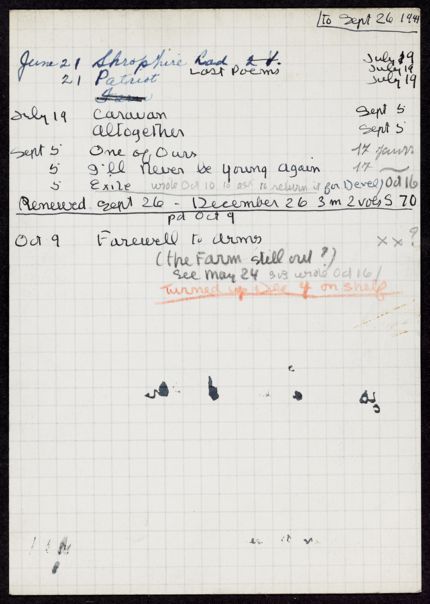 to Sept 26 1941
June 21 Shropshire Lad 2 v. July 19
Last Poems July 19
21 Patriot July 19
July 19 Caravan Sept 5
Altogether Sept 5
Sept 5 One of Ours 17 yours
5 I'll Never be Young Again 17
5 Exile wrote Oct 10 to ask to return it for Devel) Oct 16
Renewed Sept 26 - December 26 3 m 2 vols $ 70
pd Oct 9
Oct 9 Farewell to Arms x x ?
(the Farm still out ?)
see May 24 wrote Oct 16/
Turned up Dec 4 on shelf